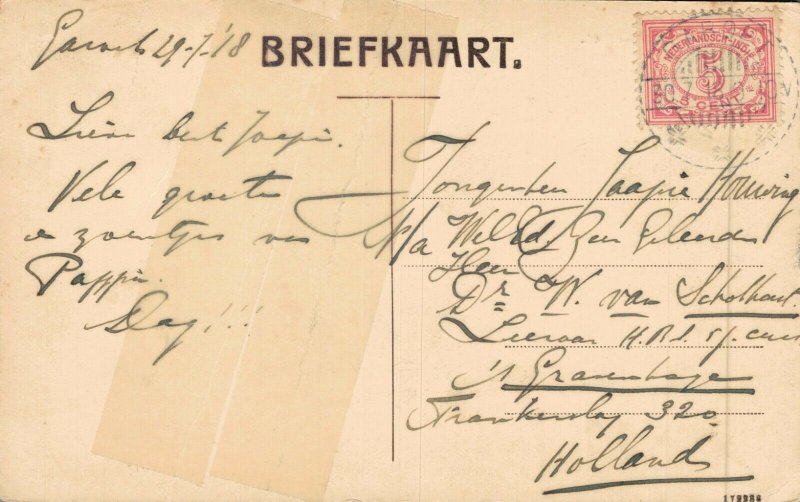 Garoet 29-7-'18
BRIEFKAART.
NEDERLANDSCH-INDIË
5
CENT
Lieve beste Jaapie.
Vele groeten
en zoentjes van
Pappie.
Dag!!!
Jongenheer Jaapie Houwing
p/a WelEd. Zeer Geleerden
Heer
Dr W. van
Leeraar H.B.S. 5/j. cursus
's Gravenhage
Frankenslag 320
Holland